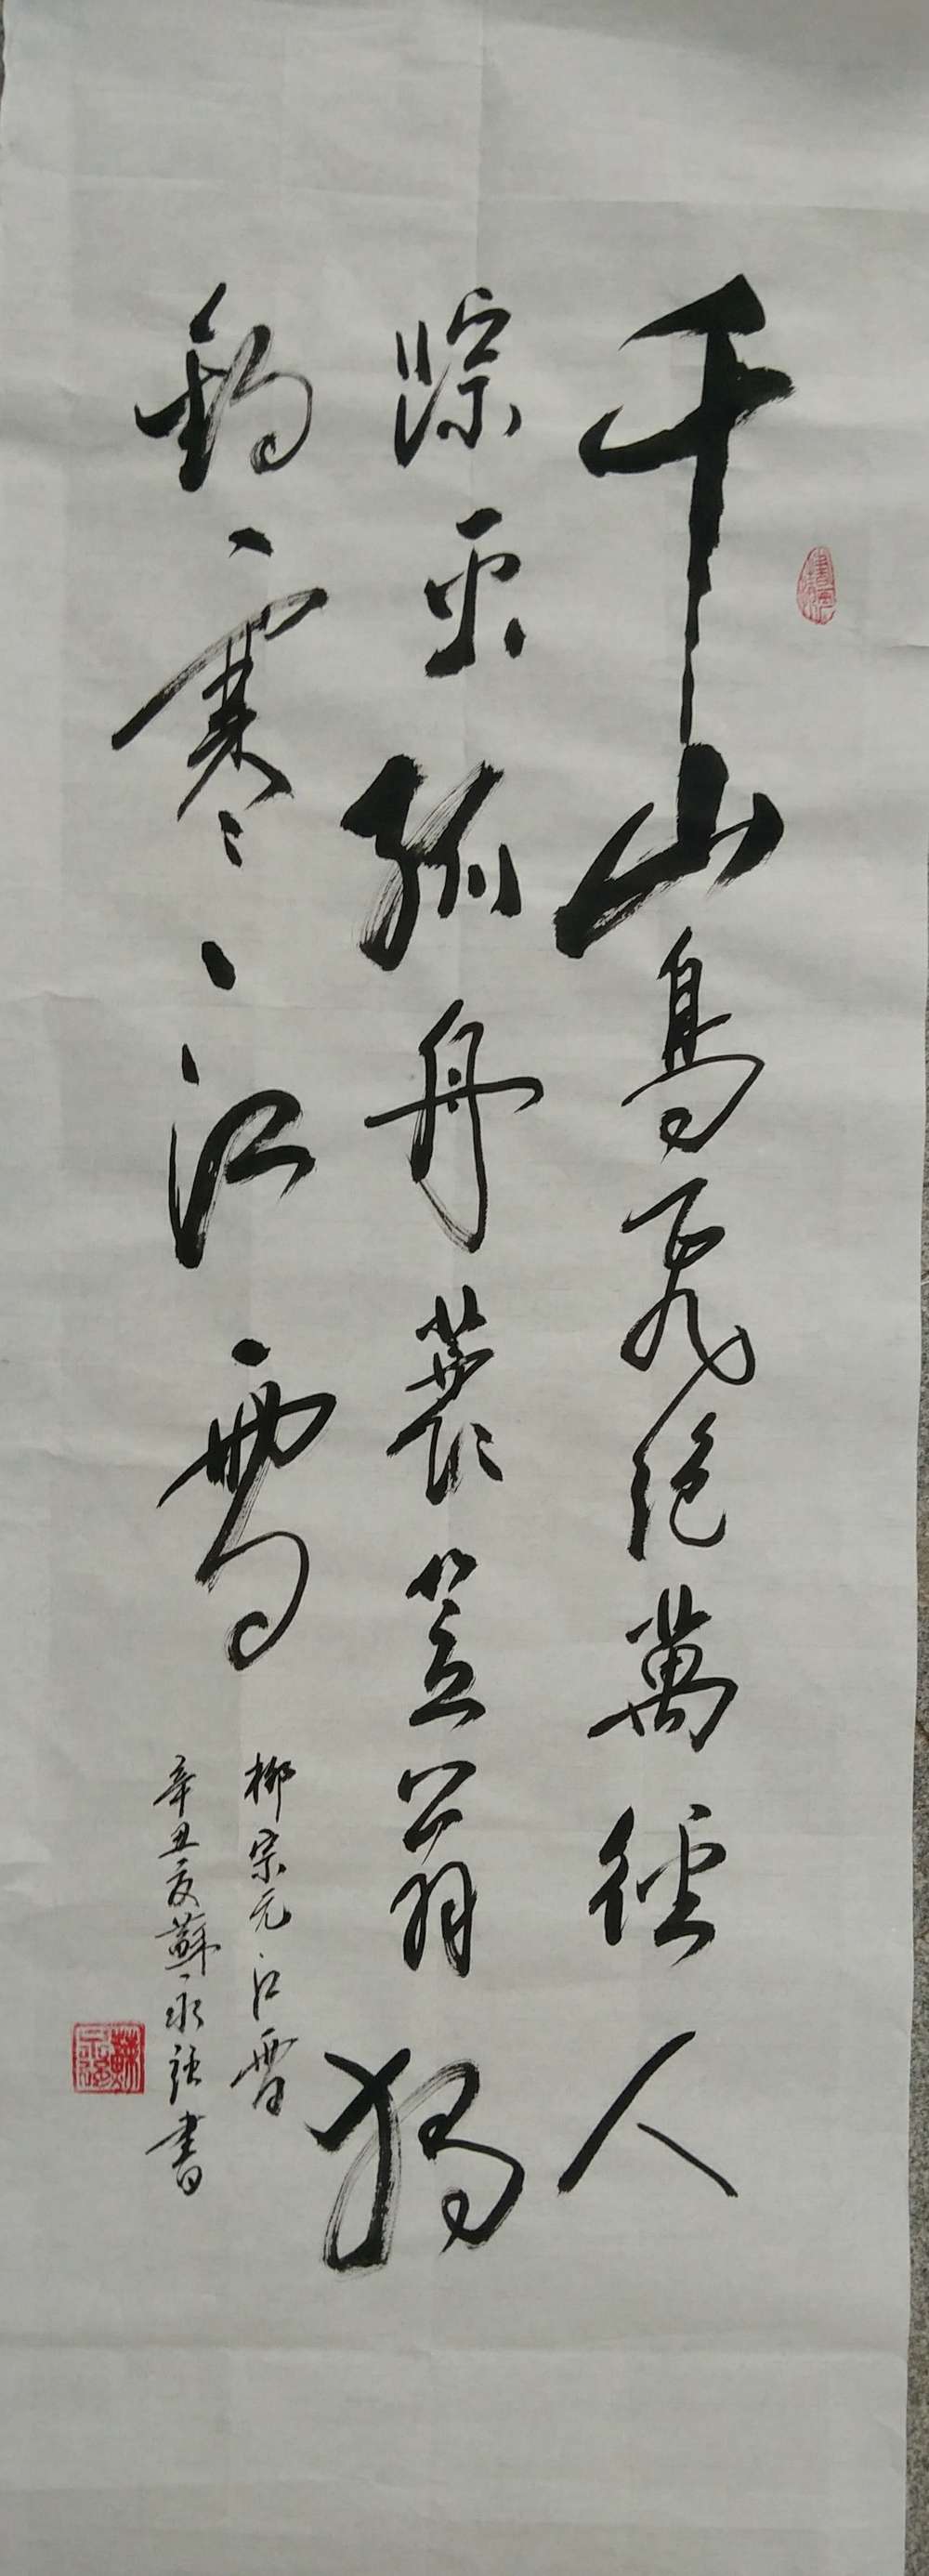 千山鳥飛絕萬徑人
踪滅孤舟蓑笠翁獨
釣寒江雪
柳宗元江雪
辛丑夏蘇永強書